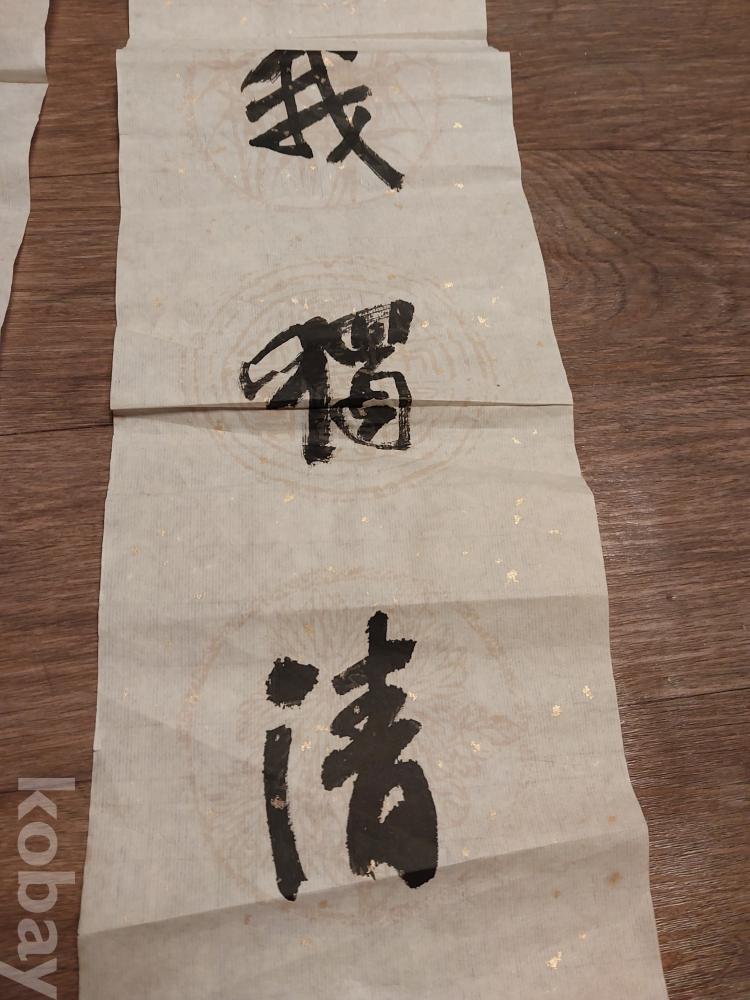 我獨清
kobay